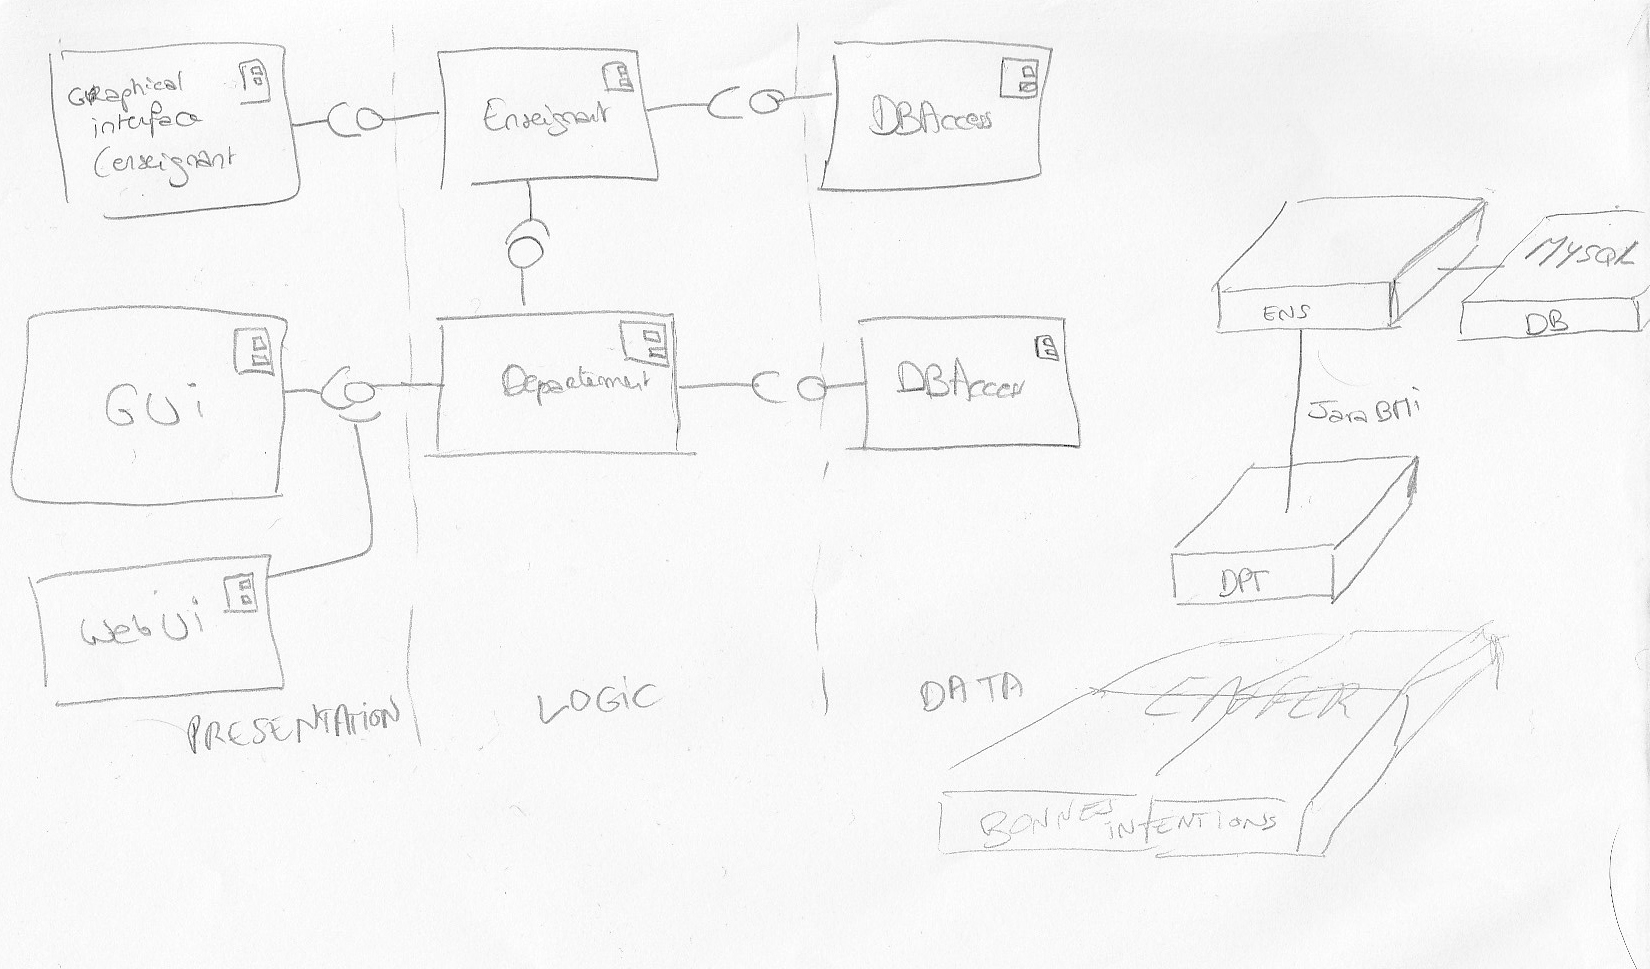 Graphical
interface
(enseignant
Enseignant
DBAccess
GUi
Departement
DBAccess
Web Ui
PRESENTATION
LOGiC
DATA
ENS
MYSQL
DB
Java RMi
DPT
ENFER
BONNES INTENTIONS